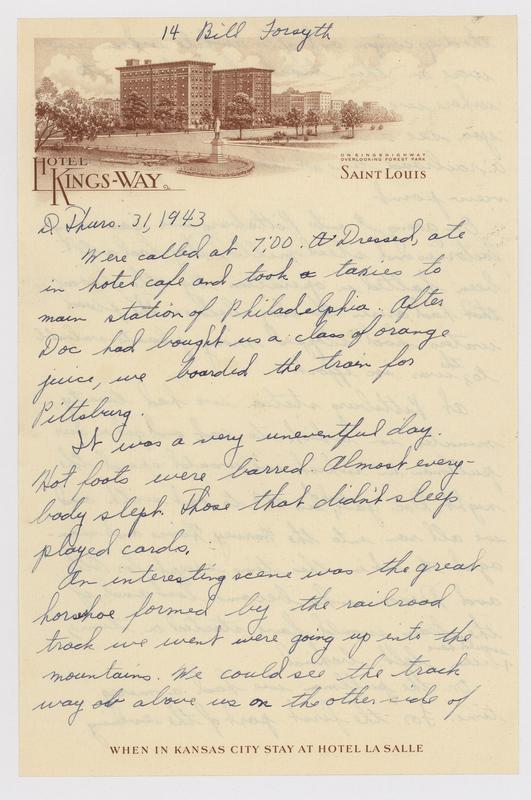 14 Bill Forsyth
HOTEL
KINGS-WAY
ON KINGSHIGHWAY
OVERLOOKING FOREST PARK
SAINT LOUIS
D. Thurs. 31, 1943
Were called at 7:00. Dressed, ate
in hotel cafe and took a taxies to
main station of Philadelphia. After
Doc had bought us a class of orange
juice, we boarded the train for
Pittsburg.
It was a very uneventful day.
Hot foots were barred. Almost every-
body slept. Those that didn't sleep
played cards.
An interesting scene was the great
horshoe formed by the railroad
track we went were going up into the
mountains. We could see the track
way ob above us on the other side of
WHEN IN KANSAS CITY STAY AT HOTEL LA SALLE